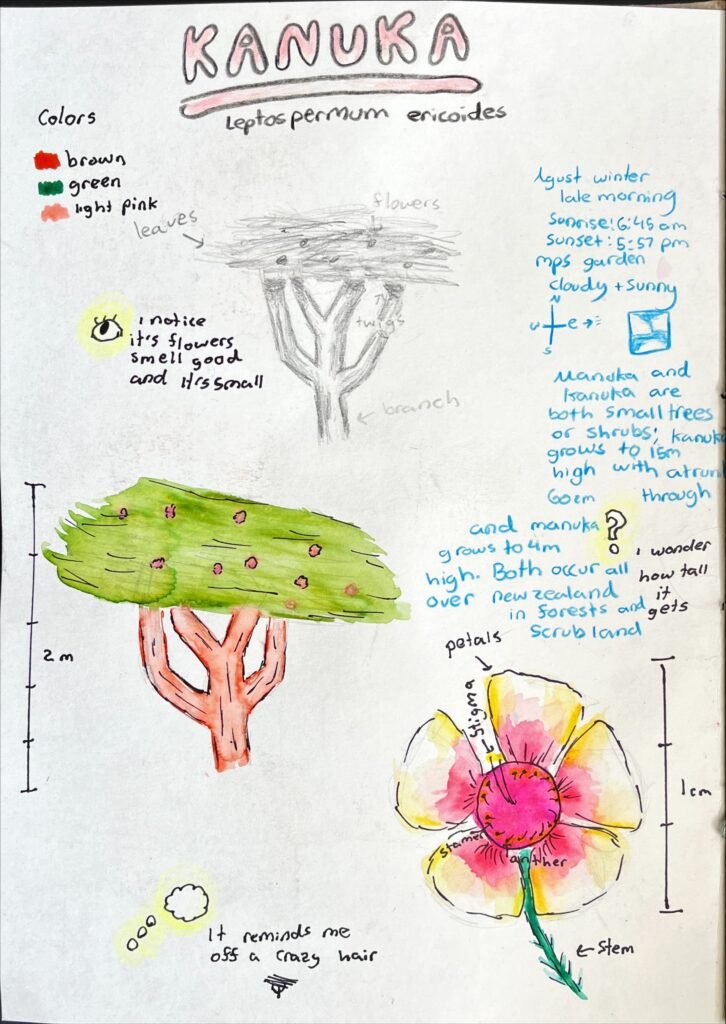 KANUKA
Leptospermum ericoides
Colors
brown
green
light pink
leaves
flowers
twigs
branch
I notice
it's flowers
smell good
and it's small
Agust winter
late morning
sunrise: 6:45 am
sunset: 5:57 pm
mps garden
cloudy + sunny
N
w e
s
Manuka and
Kanuka are
both small trees
or shrubs; kanuka
grows to 15m
high with a trunk
60cm through
and manuka
grows to 4m
high. Both occur all
over new zealand
in forests and
scrub land
?
I wonder
how tall
it
gets
2 m
petals
stigma
stamen
anther
stem
1cm
It reminds me
off a crazy hair